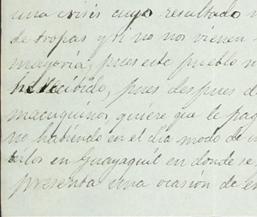 una crisis cuyo resultado
de tropas y si no nos vienen
mayoría, pues este pueblo
recibido, pues despues d
macuquino, quiere que le pag
no habiendo en el día modo de
en Guayaquil en donde se
presenta una ocasión de en